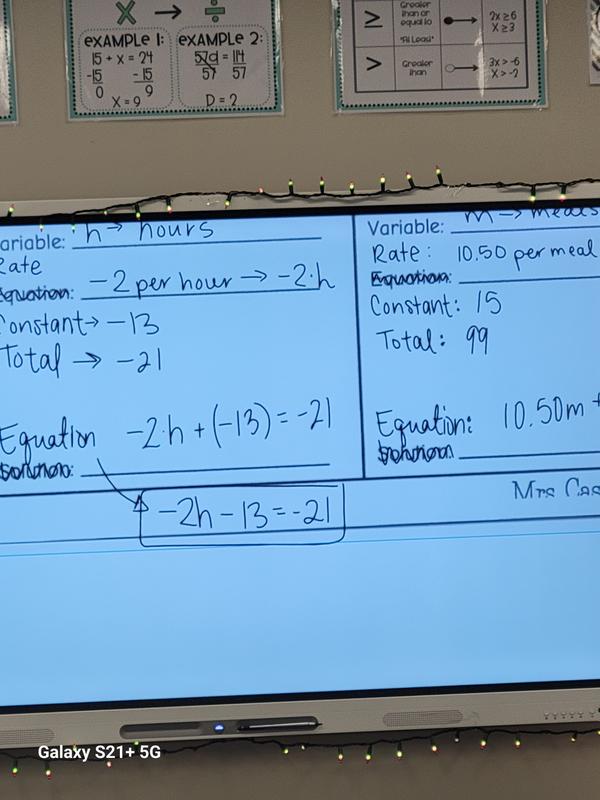 X → ÷
EXAMPLE 1:
15 + x = 24
-15 -15
0 9
X = 9
EXAMPLE 2:
57d = 114
57 57
D = 2
≥
Greater than or equal to
"At Least"
2x ≥ 6
X ≥ 3
>
Greater than
3x > -6
X > -2
ariable: h → hours
Rate
Equation: -2 per hour → -2·h
Constant → -13
Total → -21
Equation -2·h + (-13) = -21
Solution:
-2h - 13 = -21
Variable: m → meals
Rate: 10.50 per meal
Equation:
Constant: 15
Total: 99
Equation: 10.50m +
Solution
Mrs Cas
Galaxy S21+ 5G